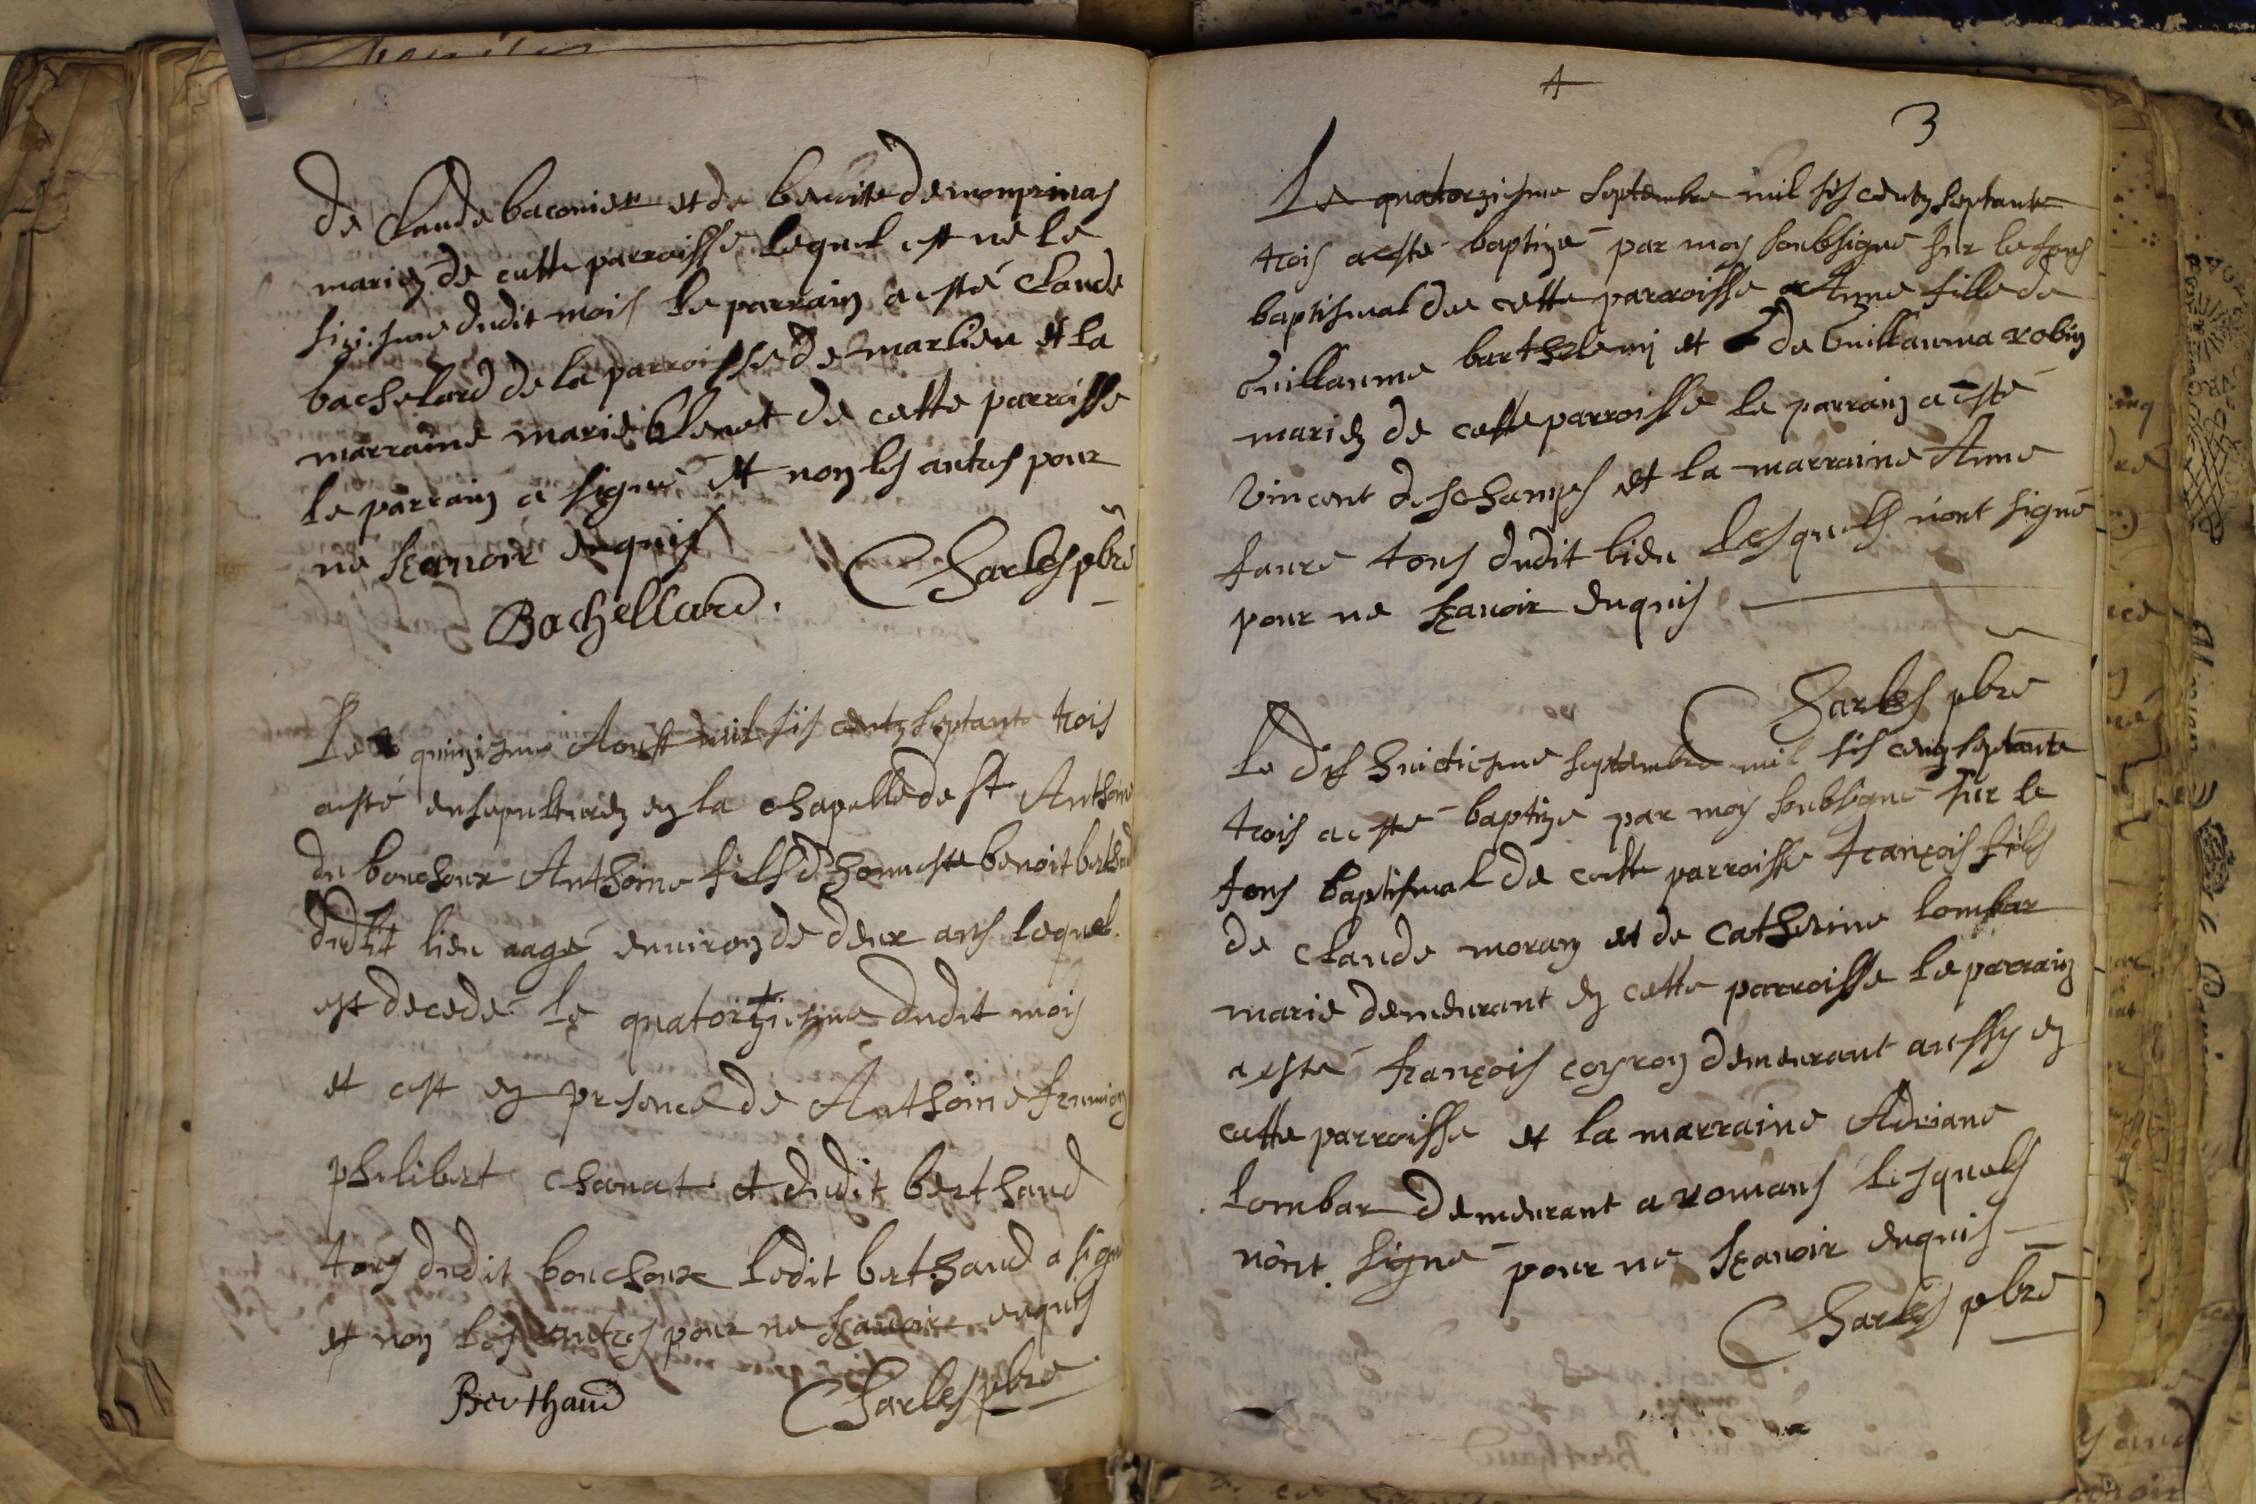 de Claude baconier et de benoite demonprinas
mariez de cette parroisse lequel est né le
siziesme dudit mois le parrain a esté Claude
bachelard de la parroisse de marlieu et la
marraine marie blenet de cette parroisse
le parrain a signé et non les autres pour
ne sçavoir enquis
Bachellard. Charles pbre
Le quinziesme Aoust mil six centz septante trois
a esté ensepulturez en la chapelle de st Anthoine
du bouchoux Anthoine fils d'honneste benoit berthaud
dudit lieu aagé environ de deux ans lequel
est decedé le quatorziesme dudit mois
et cest en presence de Anthoine
philibert chanat et dudit berthaud
tous dudit bouchoux ledit berthaud a signé
et non les autres pour ne sçavoir enquis
Berthaud Charles pbre
3
Le quatorziesme septembre mil six centz septante
trois a esté baptizé par moy soubsigné sur le fons
baptismal de cette parroisse Anne fille de
Guillaume barthelemy et de Guillauma robin
mariez de cette parroisse le parrain a esté
Vincent deschamps et la marraine Anne
faure tous dudit lieu lesquels n'ont signé
pour ne sçavoir enquis
Charles pbre
Le dix huictiesme septembre mil six centz septante
trois a esté baptizé par moy soubsigné sur le
fons baptismal de cette parroisse françois fils
de Claude moran et de Catherine lombar
marié demeurant en cette parroisse le parrain
a esté françois coyron demeurant aussy en
cette parroisse et la marraine Adriane
lombar demeurant a romans lesquels
n'ont signé pour ne sçavoir enquis
Charles pbre